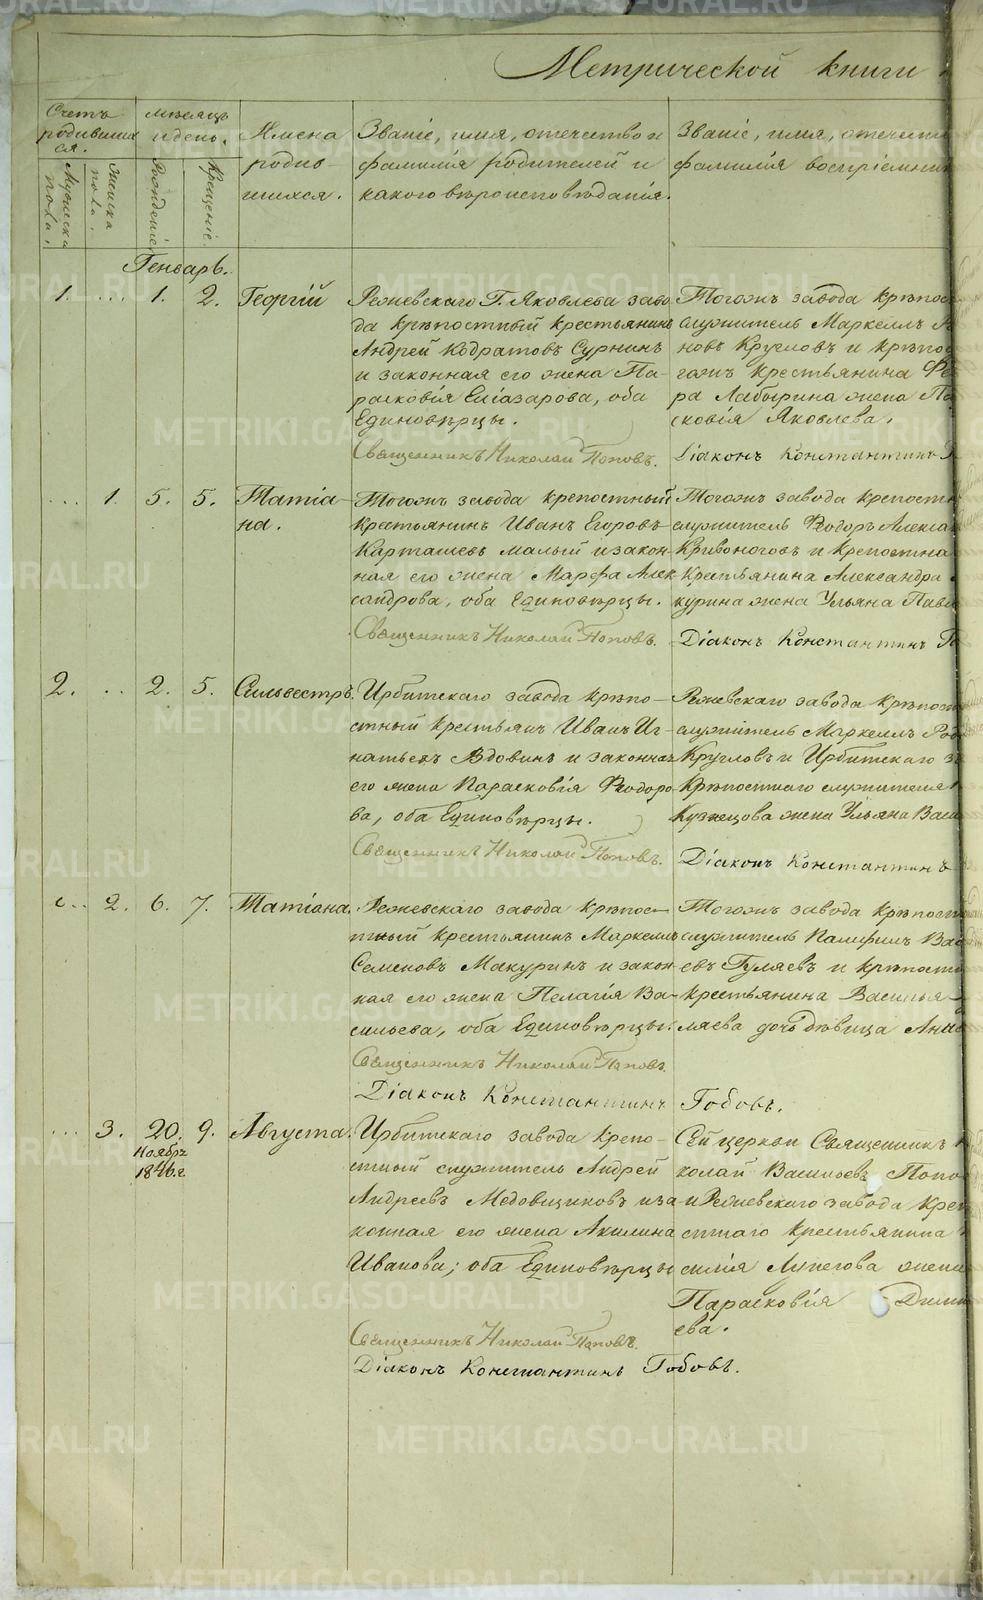 Метрической книги
Счетъ
родивших
ся.
мѣсяцъ
и день.
Имена
родив-
шихся.
Званіе, имя, отечество и
фамилія родителей и
какого вѣроисповѣданія.
Званіе, имя, отечест
фамилія воспріемни
Мужеска
пола.
Женска
пола.
Рожденіе
Крещеніе.
Генварь.
1. ... 1. 2. Георгій
Режевскаго Г. Яковлева заво
да крѣпостный крестьянинъ
Андрей Кодратовъ Сурнинъ
и законная его жена Па-
расковія Еліазарова, оба
Единовѣрцы.
Священникъ Николай Поповъ.
Тогожъ завода крѣпос
служитель Маркеллъ
новъ Кругловъ и крѣпос
гожъ крестьянина Фе
ра Лабырина жена Па
сковія Яковлева.
Діаконъ Константинъ
... 1. 5. 5. Татіа-
на.
Тогожъ завода крепостный
крестьянинъ Иванъ Егоровъ
Карташевъ малый и закон
ная его жена Марфа Алек
сандрова, оба Единовѣрцы.
Священникъ Николай Поповъ.
Тогожъ завода крепостн
служитель Феодоръ Алекса
Кривоноговъ и крепостна
Крестьянина Александра
курина жена Ульяна Павл
Діаконъ Константинъ Го
2. .. 2. 5. Сильвестръ.
Ирбитскаго завода крѣпо-
стный крестьянъ Иванъ Иг-
натьевъ Вдовинъ и законная
его жена Парасковія Феодоро
ва, оба Единовѣрцы.
Священникъ Николай Поповъ.
Режевскаго завода крѣпост
служитель Маркеллъ Род
Кругловъ и Ирбитскаго за
Крѣпостнаго служителя
Кузнецова жена Ульяна Васи
Діаконъ Константинъ
... 2. 6. 7. Татіана.
Режевскаго завода крѣпос-
тный крестьянинъ Маркеллъ
Семеновъ Макуринъ и закон
ная его жена Пелагія Ва-
сильева, оба Единовѣрцы.
Священникъ Николай Поповъ
Діаконъ Константинъ Гобовъ.
Тогожъ завода крѣпост
служитель Памфилъ Вас
евъ Гуляевъ и крѣпостн
крестьянина Василья
ляева дочь дѣвица Анас
... 3. 20. 9. Августа.
Ноябрь
1846 г.
Ирбитскаго завода крепо-
стный служитель Андрей
Андреевъ Медовщиковъ и за
конная его жена Акилина
Иванова; оба Единовѣрцы
Священникъ Николай Поповъ.
Діаконъ Константинъ Гобовъ.
Сей церкви Священникъ
колай Васильевъ Попо
и Режевскаго завода Креп
стнаго крестьянина
силія Лунегова жена
Парасковія Дими
ева.
METRIKI.GASO-URAL.RU